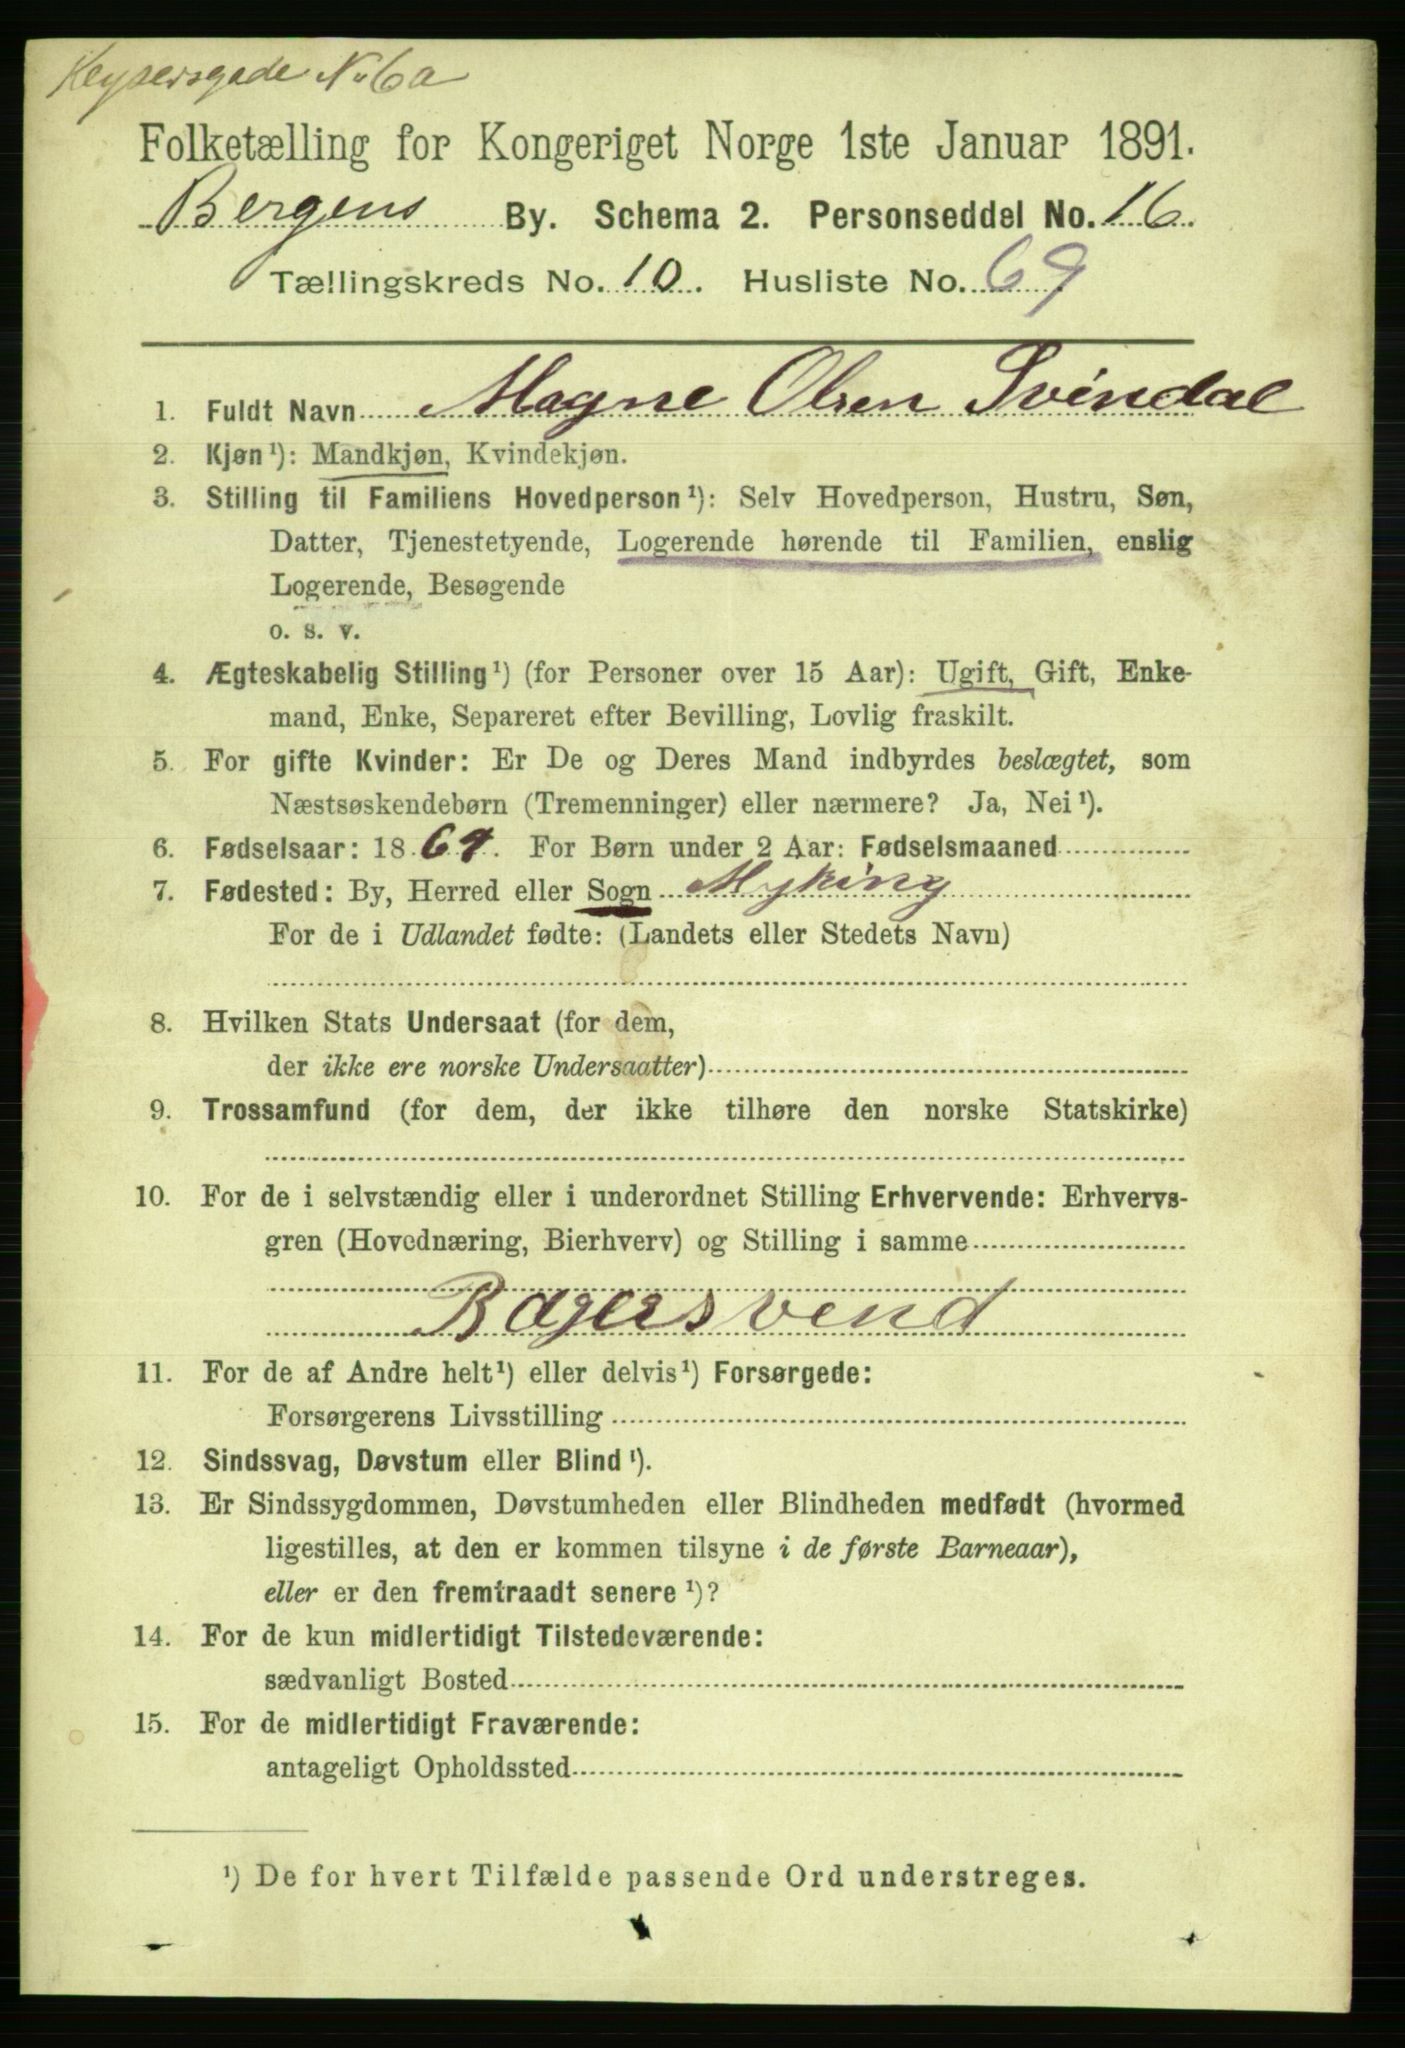 Keysersgade No 6a
Folketælling for Kongeriget Norge 1ste Januar 1891.
Bergens By. Schema 2. Personseddel No. 16.
Tællingskreds No. 10. Husliste No. 69
1. Fuldt Navn Magne Olsen Svindal
2. Kjøn¹): Mandkjøn, Kvindekjøn.
3. Stilling til Familiens Hovedperson¹): Selv Hovedperson, Hustru, Søn,
Datter, Tjenestetyende, Logerende hørende til Familien, enslig
Logerende, Besøgende
o. s. v.
4. Ægteskabelig Stilling¹) (for Personer over 15 Aar): Ugift, Gift, Enke-
mand, Enke, Separeret efter Bevilling, Lovlig fraskilt.
5. For gifte Kvinder: Er De og Deres Mand indbyrdes beslægtet, som
Næstsøskendebørn (Tremenninger) eller nærmere? Ja, Nei¹).
6. Fødselsaar: 1869. For Børn under 2 Aar: Fødselsmaaned
7. Fødested: By, Herred eller Sogn Myking
For de i Udlandet fødte: (Landets eller Stedets Navn)
8. Hvilken Stats Undersaat (for dem,
der ikke ere norske Undersaatter)
9. Trossamfund (for dem, der ikke tilhøre den norske Statskirke)
10. For de i selvstændig eller i underordnet Stilling Erhvervende: Erhvervs-
gren (Hovednæring, Bierhverv) og Stilling i samme
Bagersvend
11. For de af Andre helt¹) eller delvis¹) Forsørgede:
Forsørgerens Livsstilling
12. Sindssvag, Døvstum eller Blind¹).
13. Er Sindssygdommen, Døvstumheden eller Blindheden medfødt (hvormed
ligestilles, at den er kommen tilsyne i de første Barneaar),
eller er den fremtraadt senere¹)?
14. For de kun midlertidigt Tilstedeværende:
sædvanligt Bosted
15. For de midlertidigt Fraværende:
antageligt Opholdssted
¹) De for hvert Tilfælde passende Ord understreges.